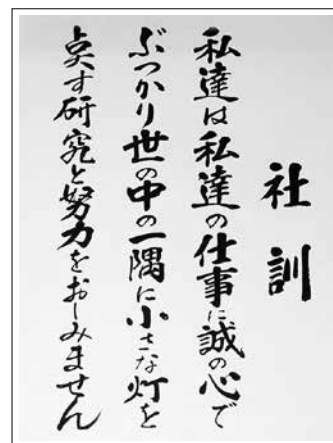 社訓
私達は私達の仕事に誠の心で
ぶつかり世の中の一隅に小さな灯を
点す研究と努力をおしみません